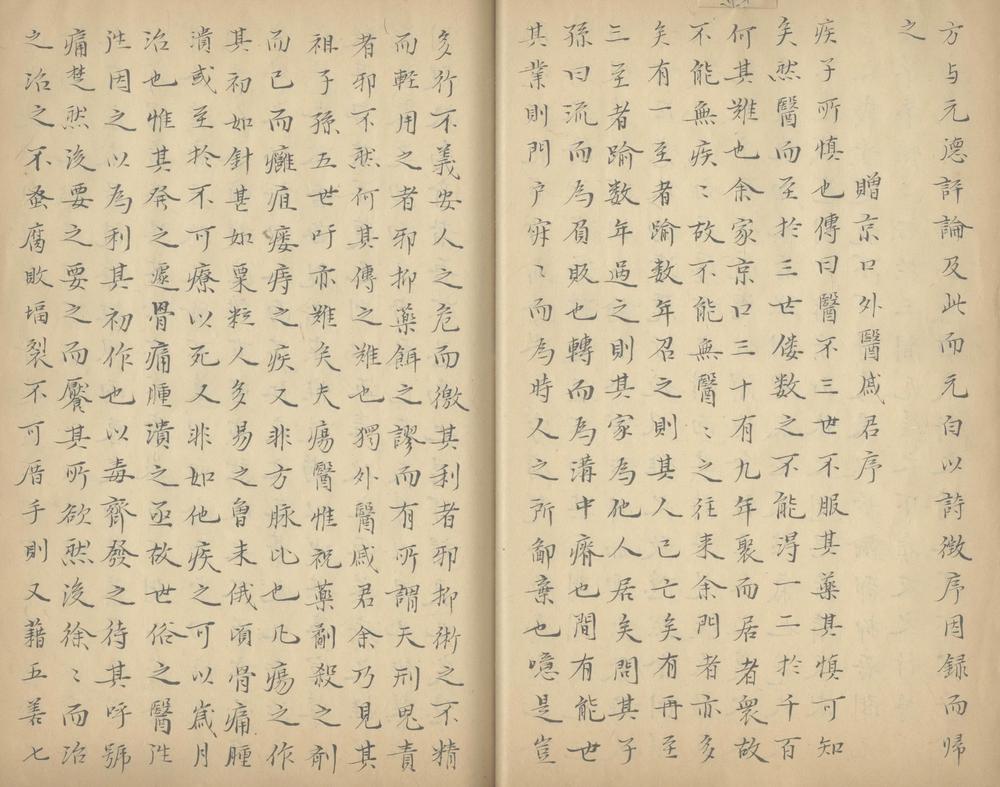 方与元德評論及此而元白以詩徴序因録而帰
之
贈京口外醫戚君序
疾子所慎也傳曰醫不三世不服其藥其慎可知
矣然醫而至於三世僂数之不能淂一二於千百
何其難也余家京口三十有九年聚而居者衆故
不能無疾〻故不能無醫〻之往来余門者亦多
矣有一至者踰数年召之則其人已亡矣有再至
三至者踰数年過之則其家為他人居矣問其子
孫曰流而為負販也轉而為溝中瘠也間有能世
其業則門户寂〻而為時人之所鄙棄也噫是豈
多行不義安人之危而徼其利者邪抑術之不精
而軽用之者邪抑藥餌之謬而有所謂天刑鬼責
者邪不然何其傳之難也獨外醫戚君余乃見其
祖子孫五世吁亦難矣夫瘍醫惟祝藥劀殺之劑
而已而癰疽瘻痔之疾又非方脉比也凢瘍之作
其初如針甚如粟粒人多易之魯未俄頃骨痛腫
潰或至扵不可療以死又非如他疾之可以嵗月
治也惟其發之遽骨痛腫潰之亟故世俗之醫徃
徃因之以為利其初作也以毒齊發之待其呼號
痛楚然後要之要之而饜其所欲然後徐〻而治
之治之不蚤腐敗堛裂不可厝手則又藉五善七